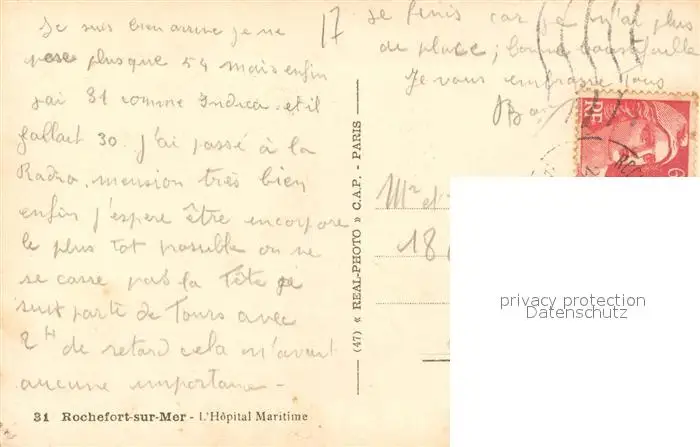 Je suis bien arrivé je ne
pese plusque 54 mais enfin
j'ai 31 comme Indica. et il
fallait 30. j'ai passé à la
Radio, mension très bien
enfin j'espere être encorpore
le plus tot possible on ne
se casse pas la Tête je
suit parti de Tours avec
2 H de retard cela n'avait
aucune importance -
17
je finis car je n'ai plus
de place; bonne
Je vous embrasse tous
RF
6
Mr et
18
(47) « REAL-PHOTO » C.A.P. - PARIS
privacy protection
Datenschutz
31 Rochefort-sur-Mer - L'Hôpital Maritime